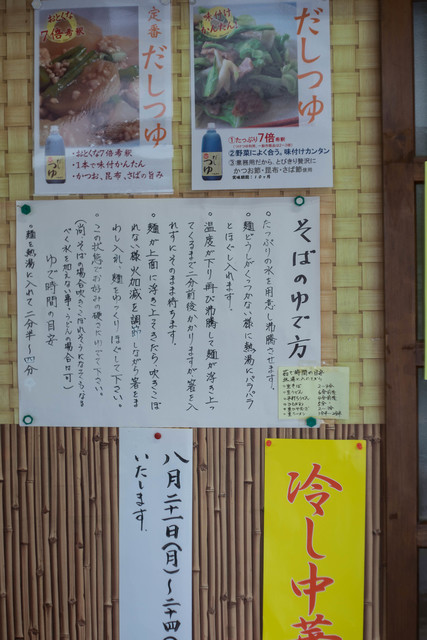 定番
だしつゆ
おとくな
7倍希釈
・おとくな7倍希釈
・1本で味付かんたん
・かつお、昆布、さばの旨み
つゆ
だしつゆ
味付け
かんたん
①たっぷり7倍希釈
②野菜によく合う。味付カンタン
③業務用だから、とびきり贅沢に
かつお節・昆布・さば節使用
つゆ
そばのゆで方
・たっぷりの水を用意し沸騰させます。
・麺どうしがくっつかない様に熱湯にパラパラ
とほぐし入れます。
・温度が下り再び沸騰して麺が浮き上っ
てくるまで二分前後かかりますが箸を入
れずにそのまま待ちます。
・麺が上面に浮き上ってきたら吹きこぼ
れない様火加減を調節しながら箸をま
わし入れ、麺をゆっくりほぐして下さい。
・この状態でお好みの硬さにゆでて下さい。
ゆで時間の目安
・麺を熱湯に入れて二分半〜四分
八月二十一日(月)〜二十四
いたします。
冷し中華